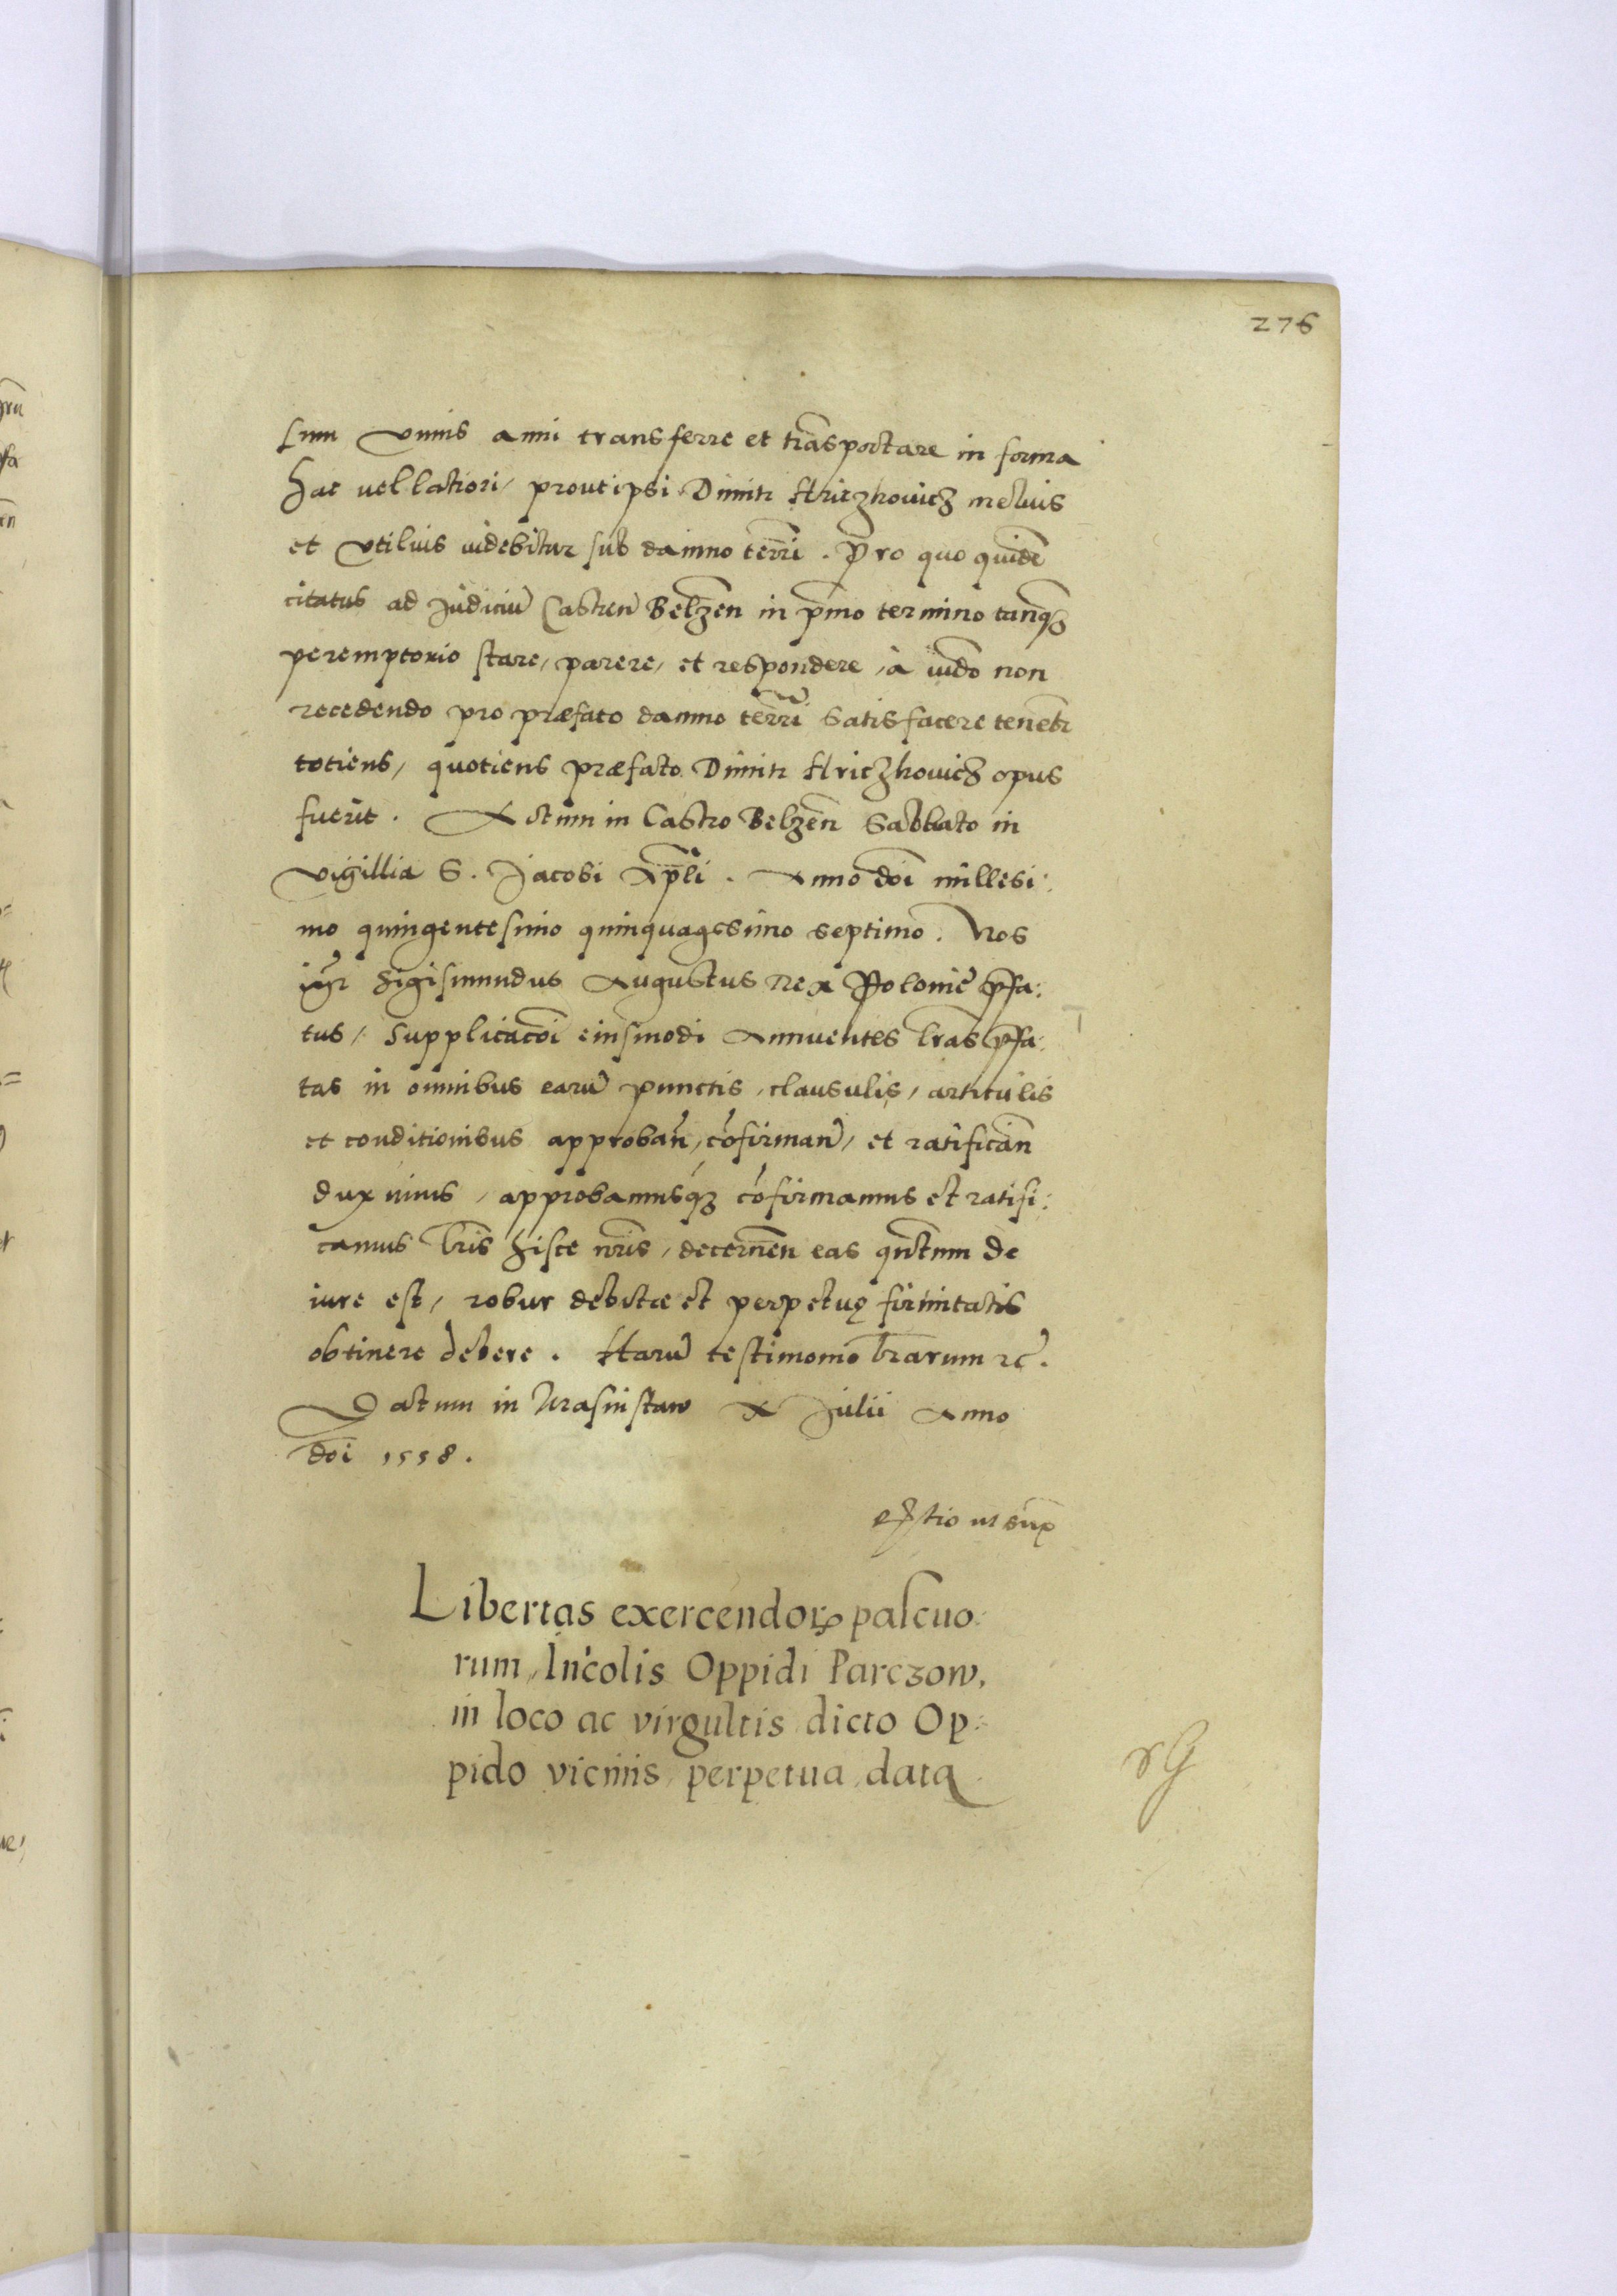 276
sum vnius anni transferre et trãsportare in forma
hac uel latiori, prout ipsi Dimitr Hriczkovicz melius
et vtilius uidebitur sub damno terri͂. Pro quo quidẽ
citatus ad Judiciũ Castreñ Belzeñ in p̃mo termino tanq̃ȝ
peremptorio stare, parere, et respondere, à iudõ non
recedendo pro præfato damno terri͂ satisfacere teneb̃r
totiens, quotiens præfato Dimitr Hriczkovicz opus
fuerit. Actum in Castro Belzeñ Sabbato in
vigillia S. Jacobi Ap̃li. Anno dõi millesi:
mo quingentesimo quinquagesimo septimo. Nos
igr̃ Sigismundus Augustus Rex Poloniẽ p̃fa:
tus, Supplicacõi eiusmodi Annuentes lr̃as p̃fa:
tas in omnibus earũ punctis, clausulis, articulis
et conditionibus approbañ, cõfirmañ, et ratificañ
duximus, approbamusq́ȝ cõfirmamus et ratifi:
camus lr̃is hisce nr̃is, decerneñ eas qñtum de
iure est, robur debitæ et perpetuę firmitatis
obtinere debere. Harũ testimonio lr̃arum ꝛc̃.
Datum in Krasnistaw X Julii Anno
dõi 1558.
ut supᷓ
Libertas exercendoꝝ pascuo:
rum, Incolis Oppidi Parczow,
in loco ac virgultis dicto Op:
pido vicinis, perpetua data